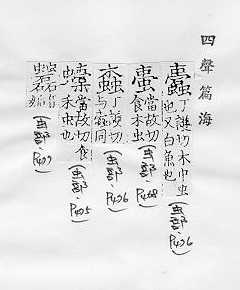 四聲篇海
蠹 丁護切木中虫
也又白魚也
(虫部, P426)
當故切
食木虫
(虫部, P428)
丁護切
与蠹同
(虫部, P426)
當故切食
禾虫也
(虫部, P425)
(虫部, P427)